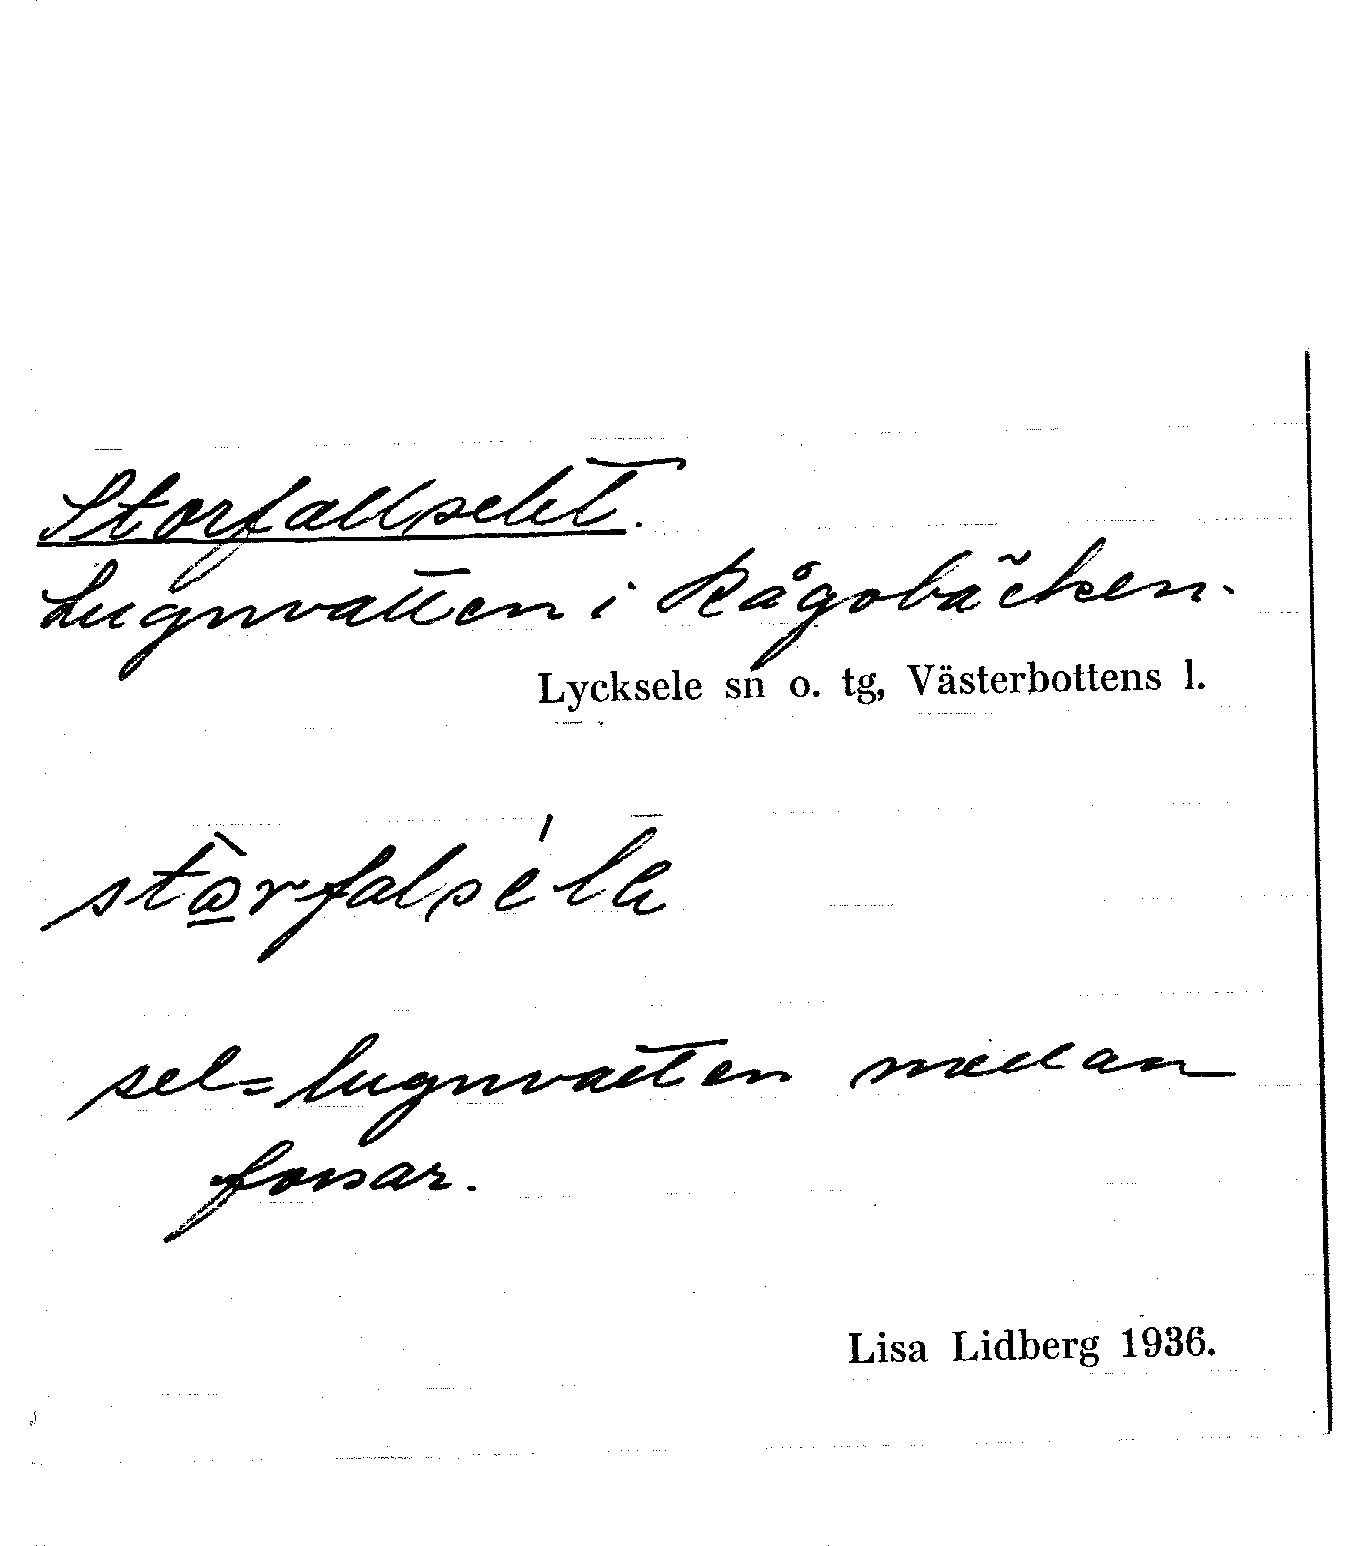 Storfallselet.
Lugnvatten i Rågobäcken.
Lycksele sn o. tg, Västerbottens l.
sel = lugnvatten mellan
forsar.
Lisa Lidberg 1936.